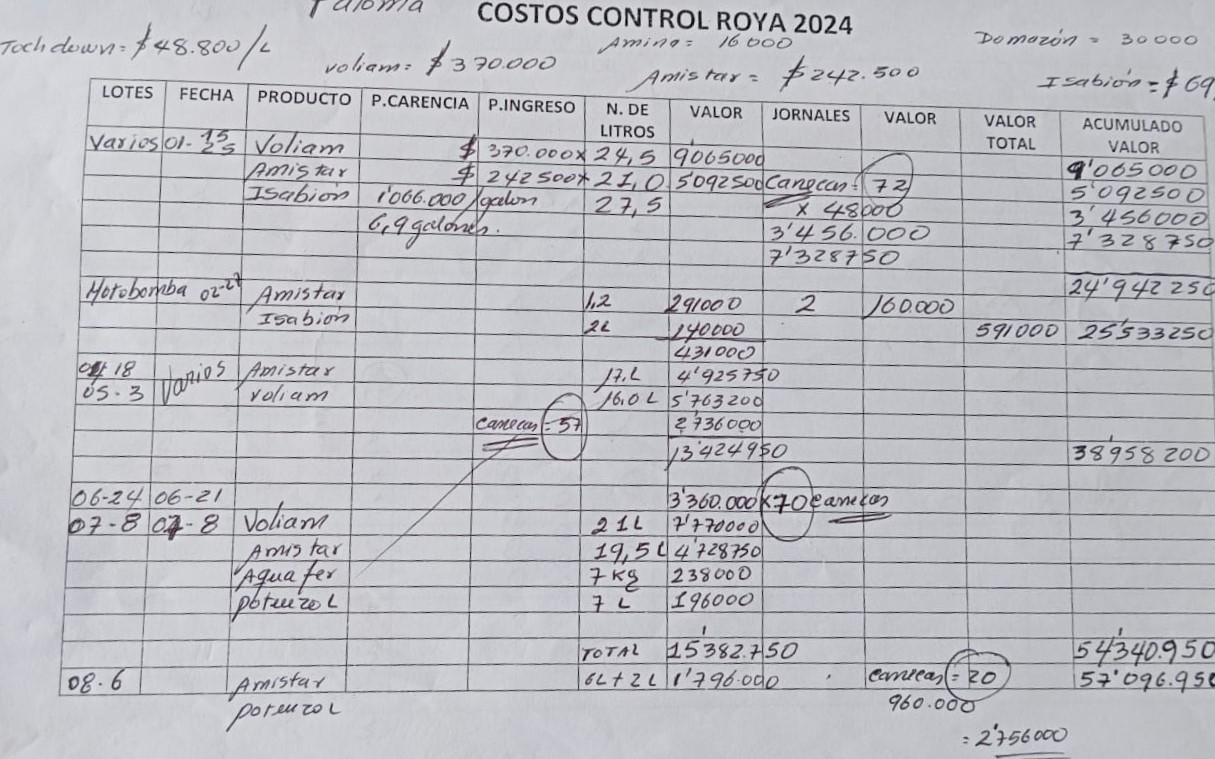 Paloma COSTOS CONTROL ROYA 2024
Tochdown = $48.800/L Amina = 16000 Domazón = 30000
voliam = $370.000 Amistar = $242.500 Isabión = $69
LOTES FECHA PRODUCTO P.CARENCIA P.INGRESO N. DE LITROS VALOR JORNALES VALOR VALOR TOTAL ACUMULADO VALOR
Varios 01-15 25 Voliam $ 370.000x 24,5 9065000 9'065000
Amistar $ 242500x 21,0 5092500 Canecas = 72 5'092500
Isabion 1'066.000/galon 27,5 x 48000 3'456000
6,9 galones. 3'456.000 7'328750
7'328750
24'942250
Motobomba 02-27 Amistar 1,2 291000 2 160.000
Isabion 2L 140000 591000 25'533250
431000
04 18 Varios Amistar 17.L 4'925750
05-3 voliam 16.0L 5'763200
canecas = 57 2'736000
13'424950 38'958200
06-24 06-21 3'360.000 x 70 canecas
07-8 07-8 Voliam 21L 7'770000
Amistar 19,5L 4'728750
Aquafer 7 kg 238000
potenzoL 7 L 196000
TOTAL 15'382.750 54'340.950
08-6 Amistar 6L+2L 1'796.000 canecas = 20 57'096.950
potenzoL 960.000
= 2'756000